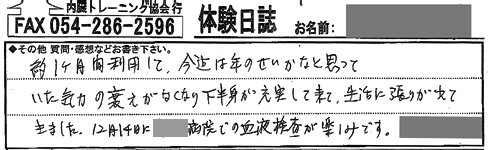 内臓トレーニング協会行
FAX 054-286-2596
体験日誌
お名前:
◆その他 質問・感想などお書き下さい。
約1ヶ月間利用して、今迄は年のせいかなと思って
いた気力の衰えがなくなり下半身が充実して来て、生活に張りが出て
きました。12月14日に 病院での血液検査が楽しみです。